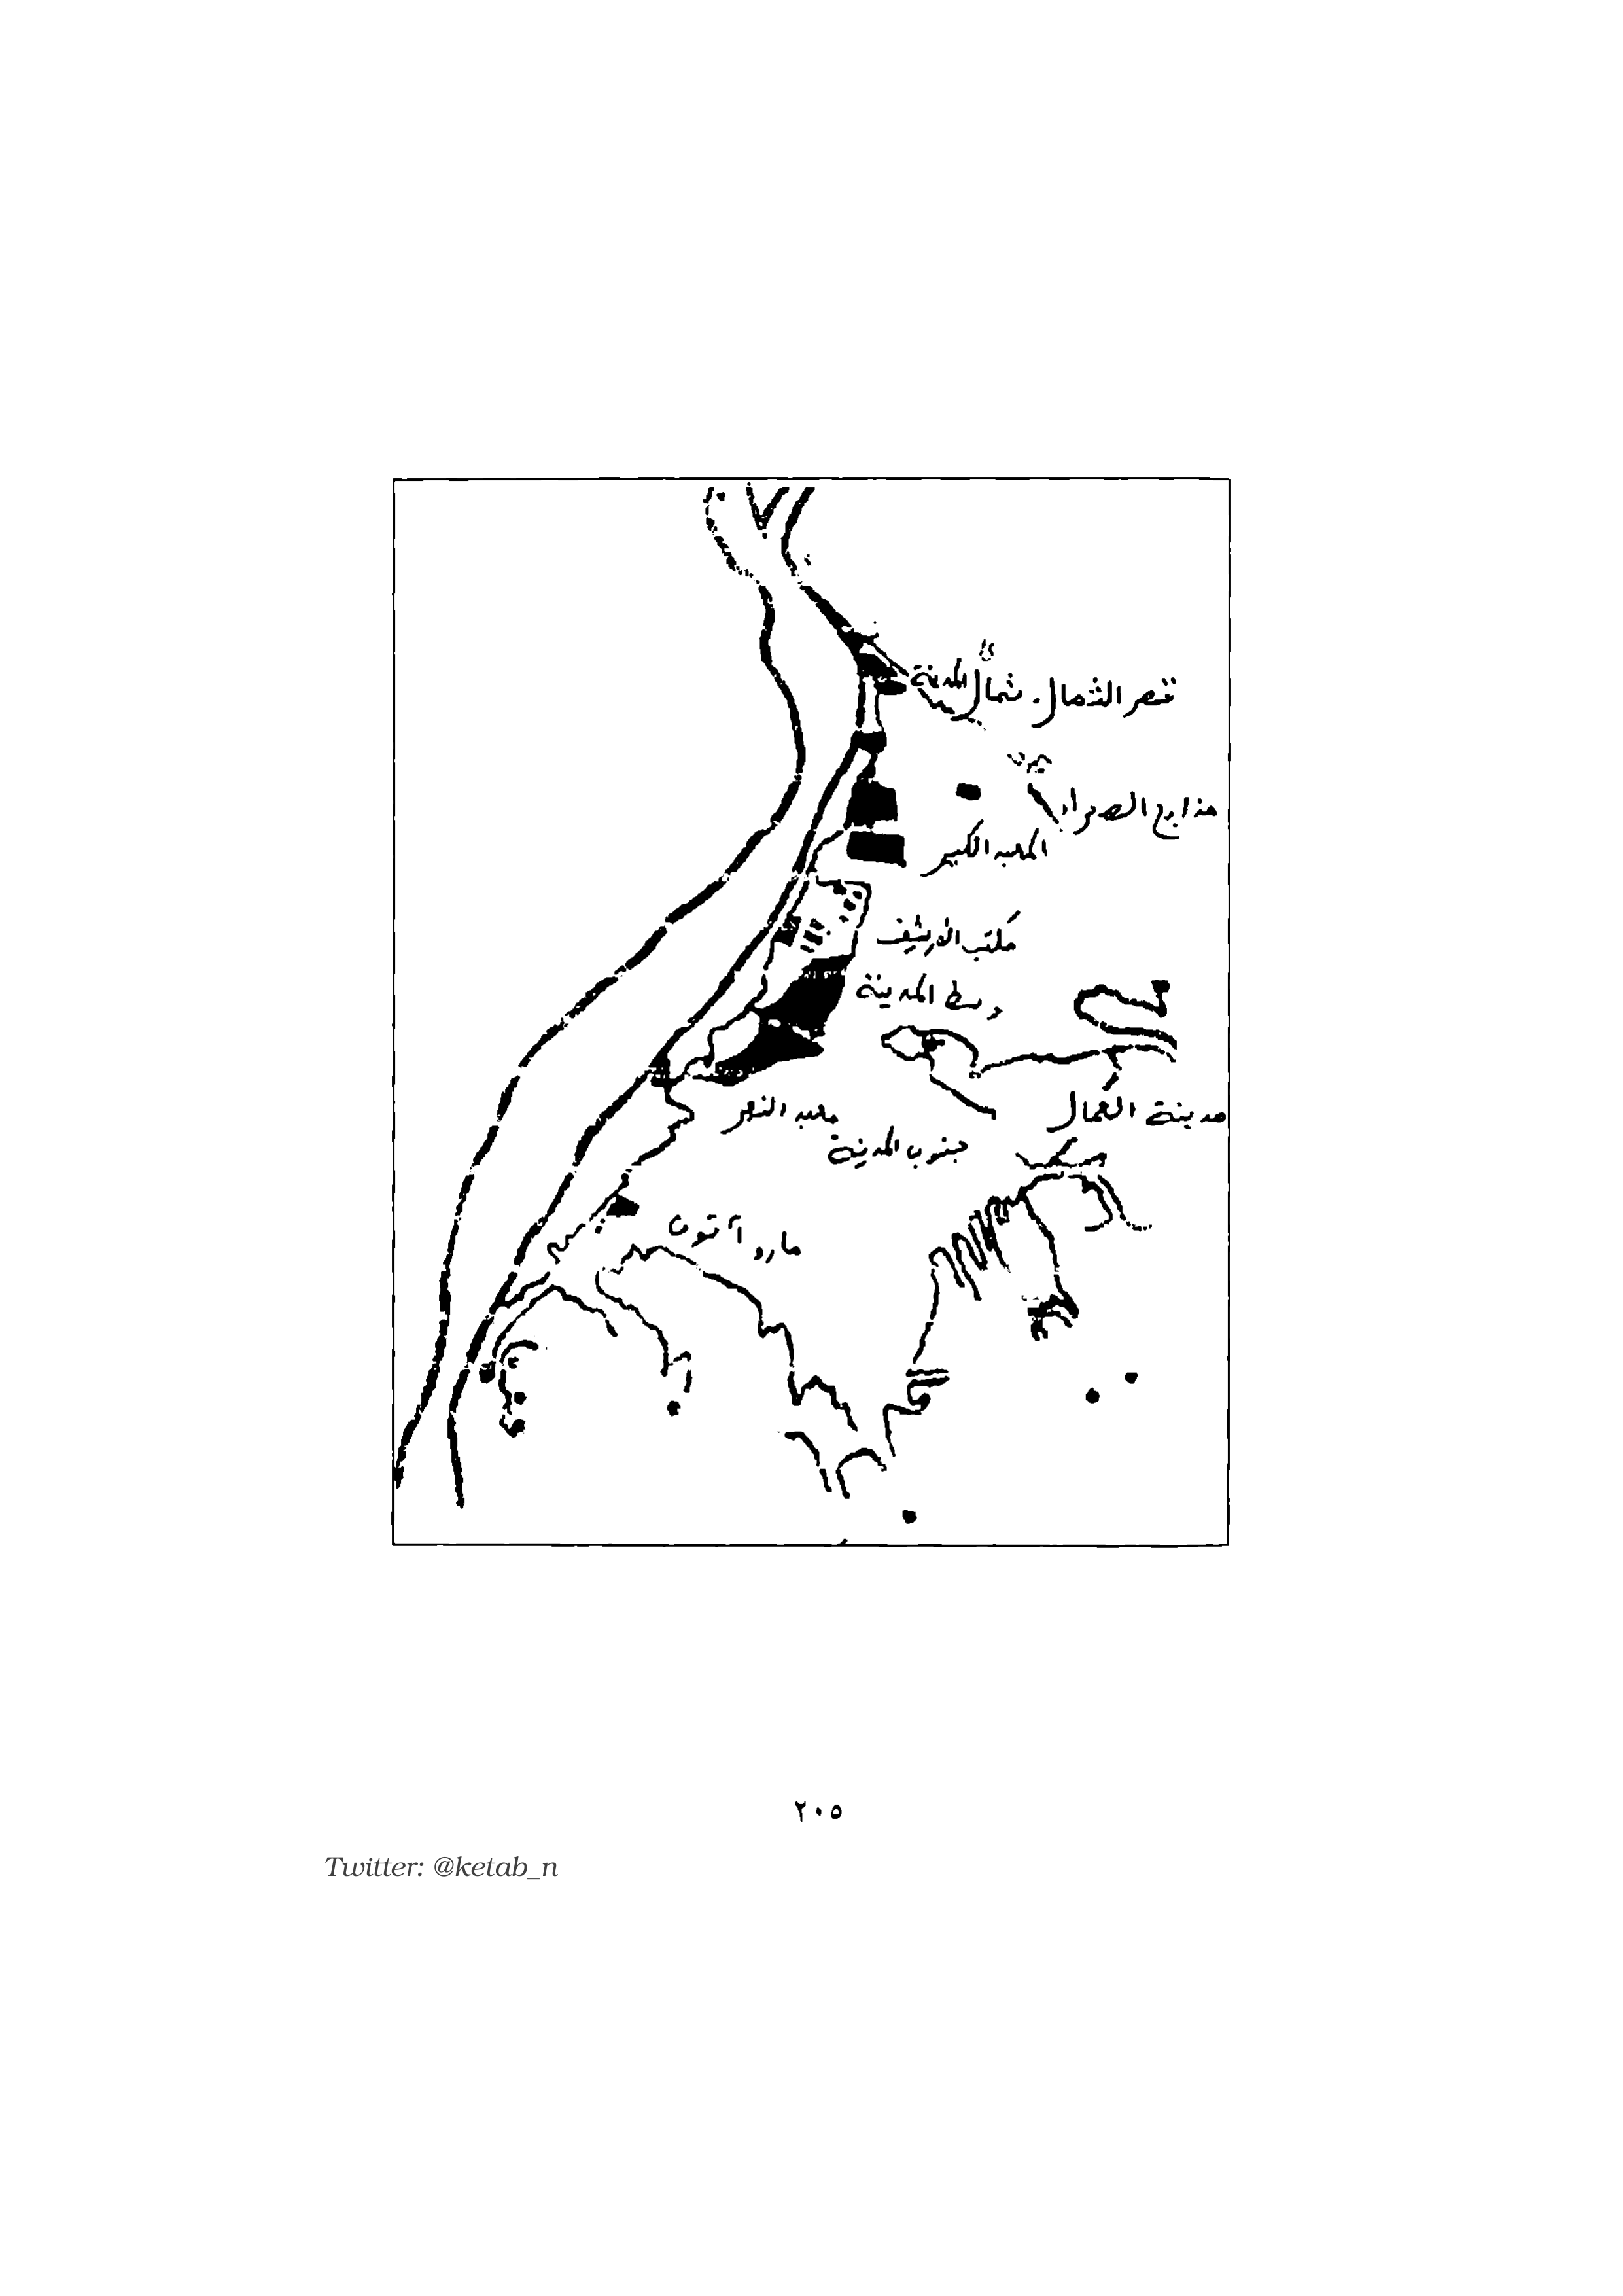 قصر الشمال. شمال المدينة
مذابح الصحراء
المعبد الكبير
مكتب الأرشيف
وسط المدينة
مدينة العمال
معبد النهر
جنوب المدينة
مارو آتون
٢٠٥
Twitter: @ketab_n